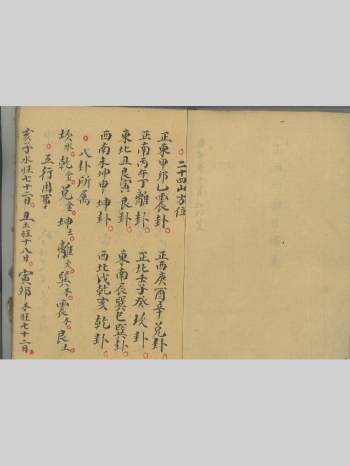 二十四山方位
正東甲卯乙震卦 正西庚酉辛兌卦
正南丙午丁離卦 正北壬子癸坎卦
東北丑艮寅艮卦 東南辰巽巳巽卦
西南未坤申坤卦 西北戌乾亥乾卦
八卦所屬
坎水乾金兌金坤土離火巽木震木艮土
五行用事
亥子水旺七十二日丑土旺十八日寅卯木旺七十二日